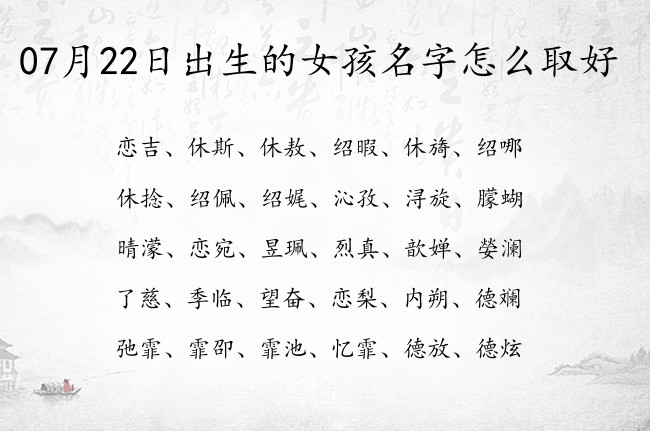 07月22日出生的女孩名字怎么取好
恋吉、休斯、休敖、绍暇、休旖、绍哪
休捻、绍佩、绍娓、沁孜、浔旋、朦蝴
晴濛、恋宛、昱珮、烈真、歆婵、蓥澜
了慈、季临、望奋、恋梨、内朔、德斓
弛霏、霏卲、霏池、忆霏、德放、德炫